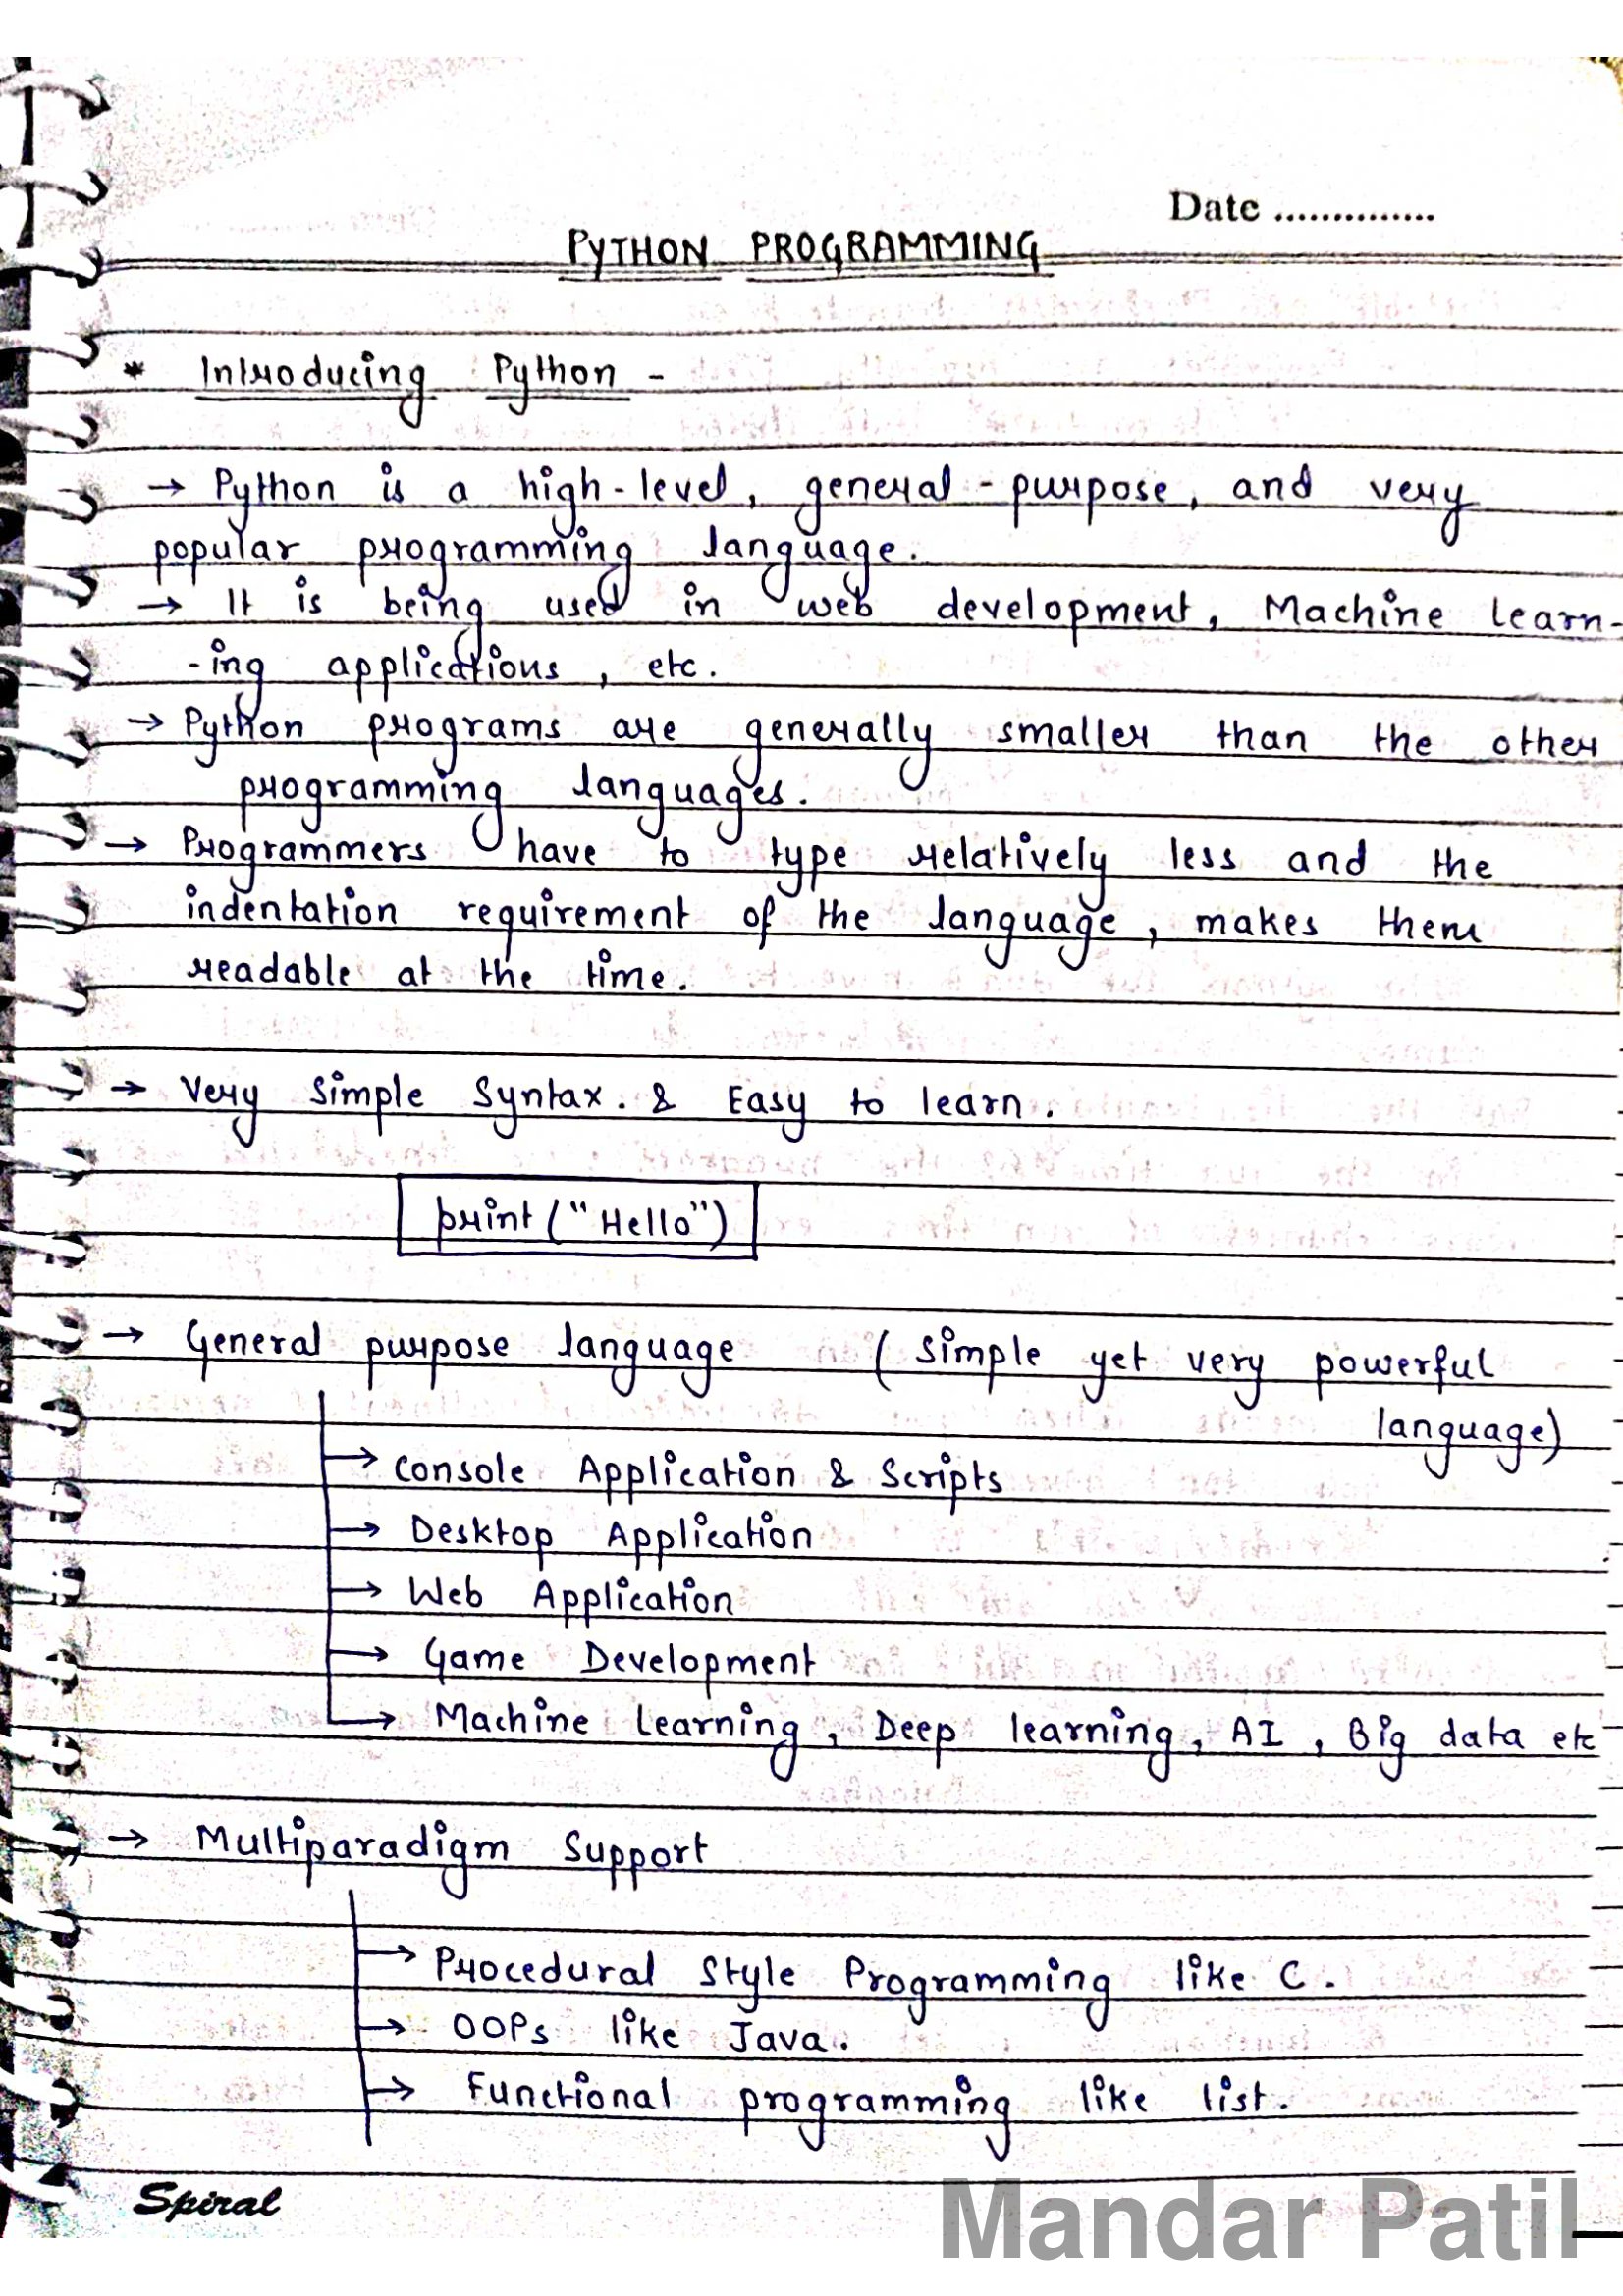 Date ..............
PYTHON PROGRAMMING
* Introducing Python -
→ Python is a high-level, general-purpose, and very
popular programming language.
→ It is being used in web development, Machine learn-
-ing applications, etc.
→ Python programs are generally smaller than the other
programming languages.
→ Programmers have to type relatively less and the
indentation requirement of the language, makes them
readable at the time.
→ Very Simple Syntax. & Easy to learn.
print ("Hello")
→ General purpose language (simple yet very powerful
language)
→ Console Application & Scripts
→ Desktop Application
→ Web Application
→ Game Development
→ Machine Learning, Deep learning, AI, Big data etc
→ Multiparadigm Support
→ Procedural Style Programming like C.
→ OOPs like Java.
→ Functional programming like list.
Spiral
Mandar Patil